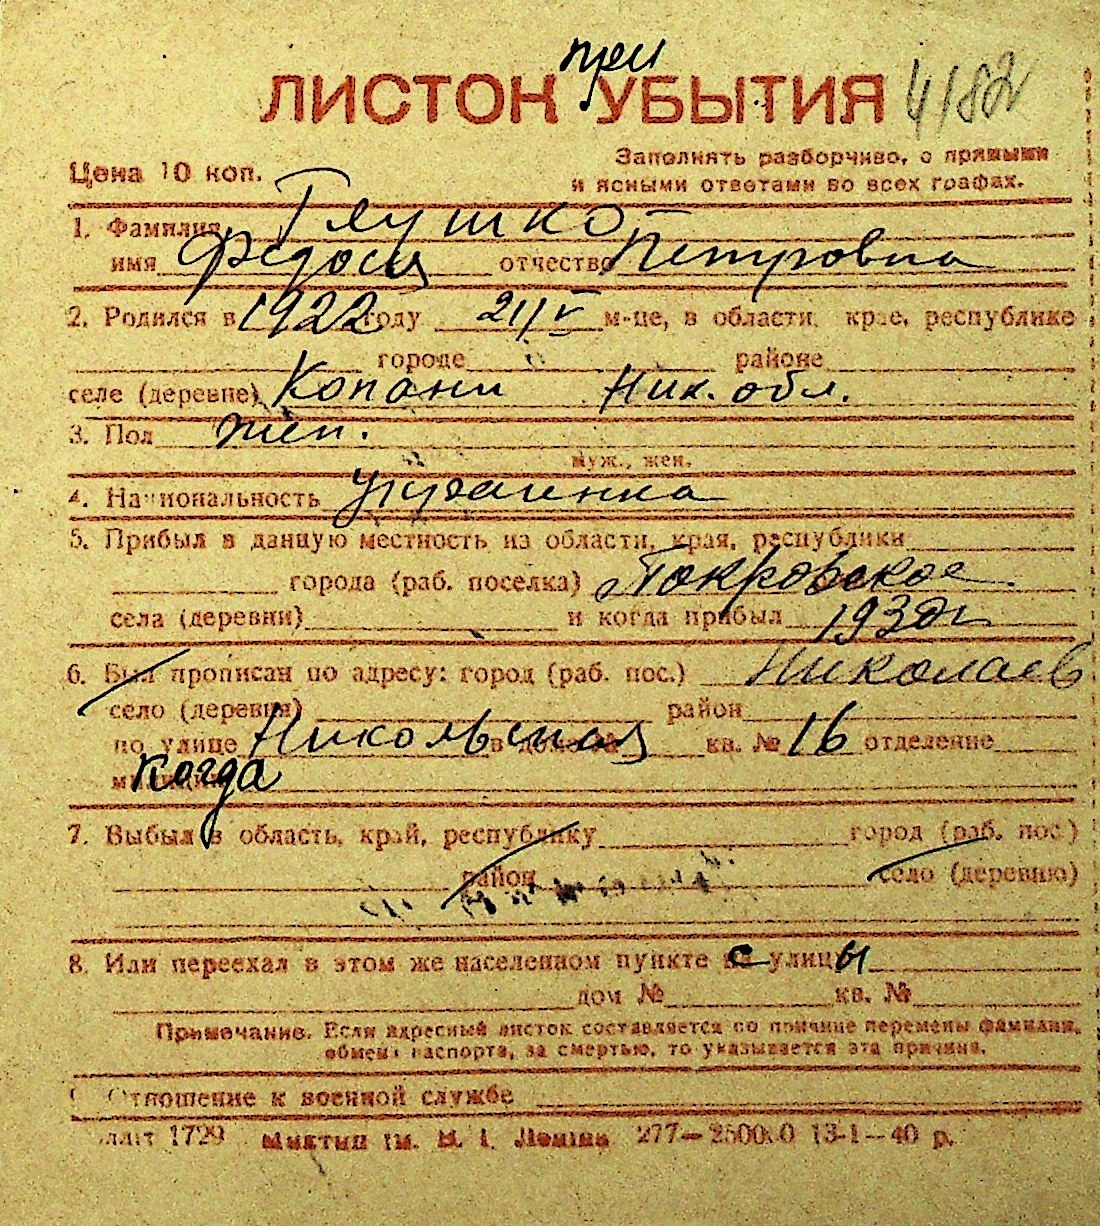 при
ЛИСТОК УБЫТИЯ 4/82
Цена 10 коп.
Заполнять разборчиво, с прямыми
и ясными ответами во всех графах.
1. Фамилия Глушко
имя Федосия отчество Петровна
2. Родился в 1922 году 21/V м-це, в области, крае, республике
городе районе
селе (деревне) Копани Ник. обл.
3. Пол жен.
муж., жен.
4. Национальность украинка
5. Прибыл в данную местность из области, края, республики
города (раб. поселка) Покровское
села (деревни) и когда прибыл
6. Был прописан по адресу: город (раб. пос.) Николаев
село (деревня) район
по улице Никольская в доме № кв. № 16 отделение
милиции Когда
7. Выбыл в область, край, республику город (раб. пос.)
район село (деревню)
8. Или переехал в этом же населенном пункте с улицы
дом № кв. №
Примечание. Если адресный листок составляется по причине перемены фамилии,
обмена паспорта, за смертью, то указывается эта причина.
Отношение к военной службе
1729 277—2500x0 13-1—40 р.